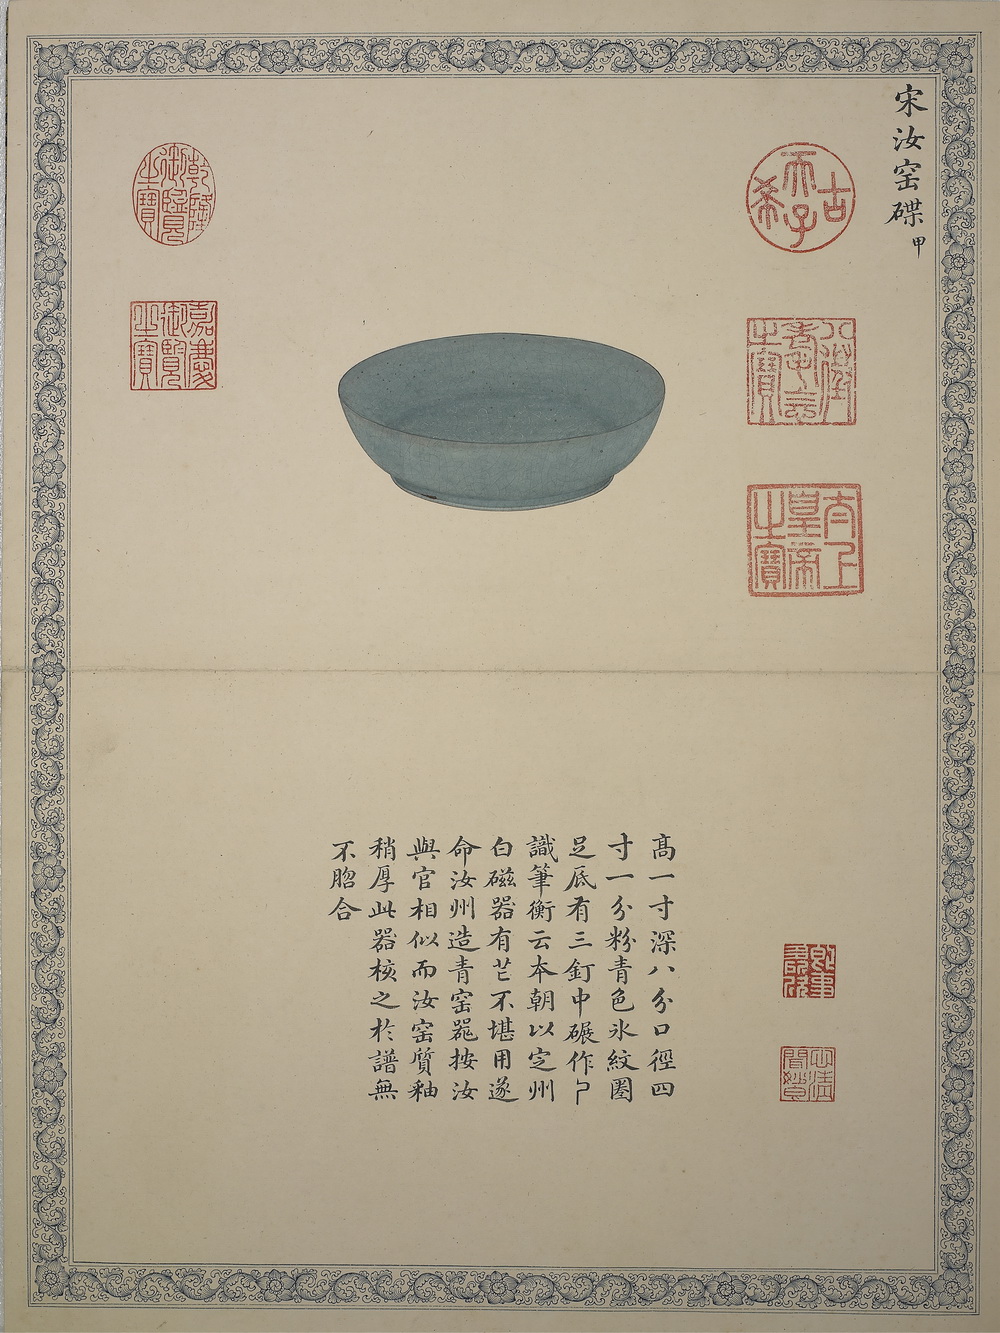 宋汝窑碟甲
古
天子
希
八徵
耄念
之寶
太上
皇帝
之寶
乾隆
御覽
之寶
嘉慶
御覽
之寶
高一寸深八分口徑四
寸一分粉青色氷紋圈
足底有三釘中碾作
識筆衡云本朝以定州
白磁器有芒不堪用遂
命汝州造青窑噐按汝
與官相似而汝窑質釉
稍厚此器核之於譜無
不脗合